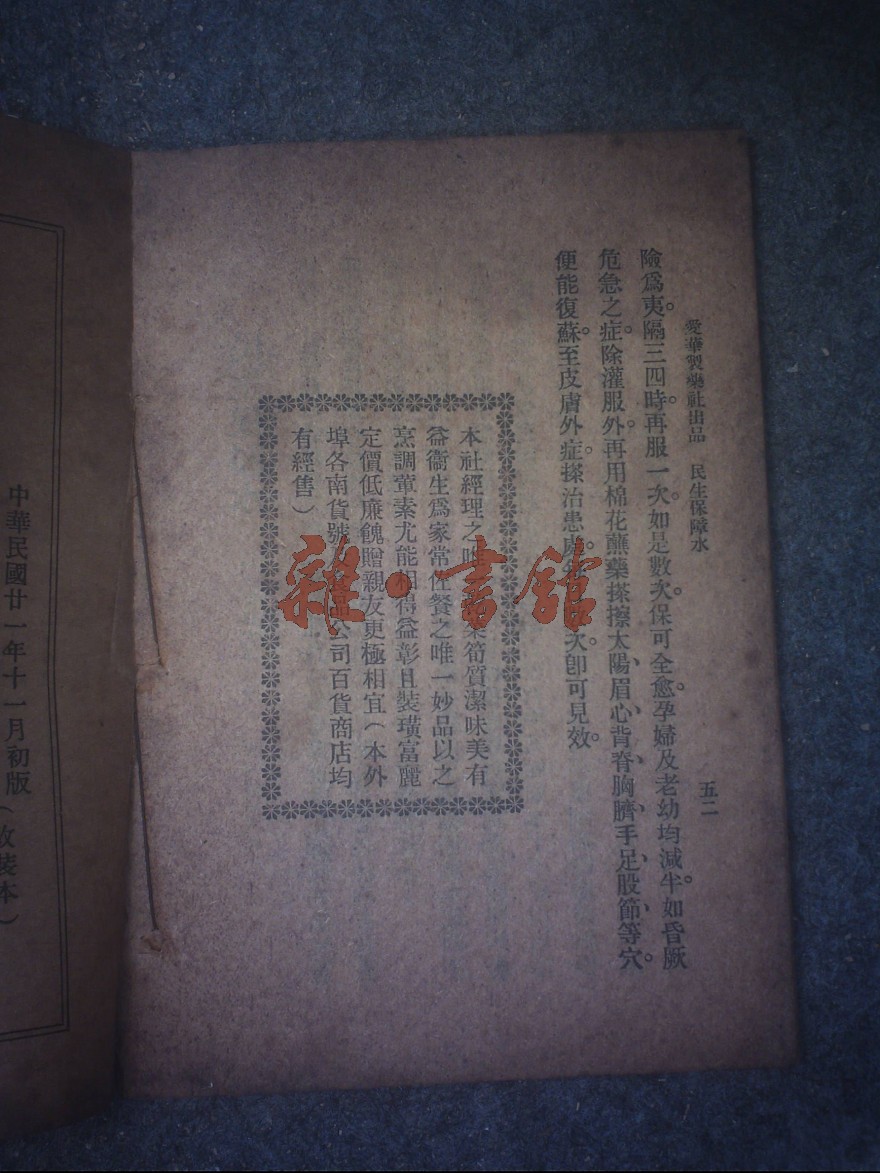 愛華製藥社出品　民生保障水
五二
險爲夷。隔三四時。再服一次。如是數次。保可全愈。孕婦及老幼均減半。如昏厥
危急之症。除灌服外。再用棉花蘸藥搽擦太陽、眉心、背脊、胸臍、手足、股節、等穴。
便能復蘇。至皮膚外症。搽治患處。次卽可見效。
本社經理之唯筍質潔味美有
益衞生爲家常佐餐之唯一妙品以之
烹調葷素尤能相得益彰且裝璜富麗
定價低廉餽贈親友更極相宜（本外
埠各南貨號品公司百貨商店均
有經售）
中華民國廿一年十一月初版（改裝本）
雜·書館